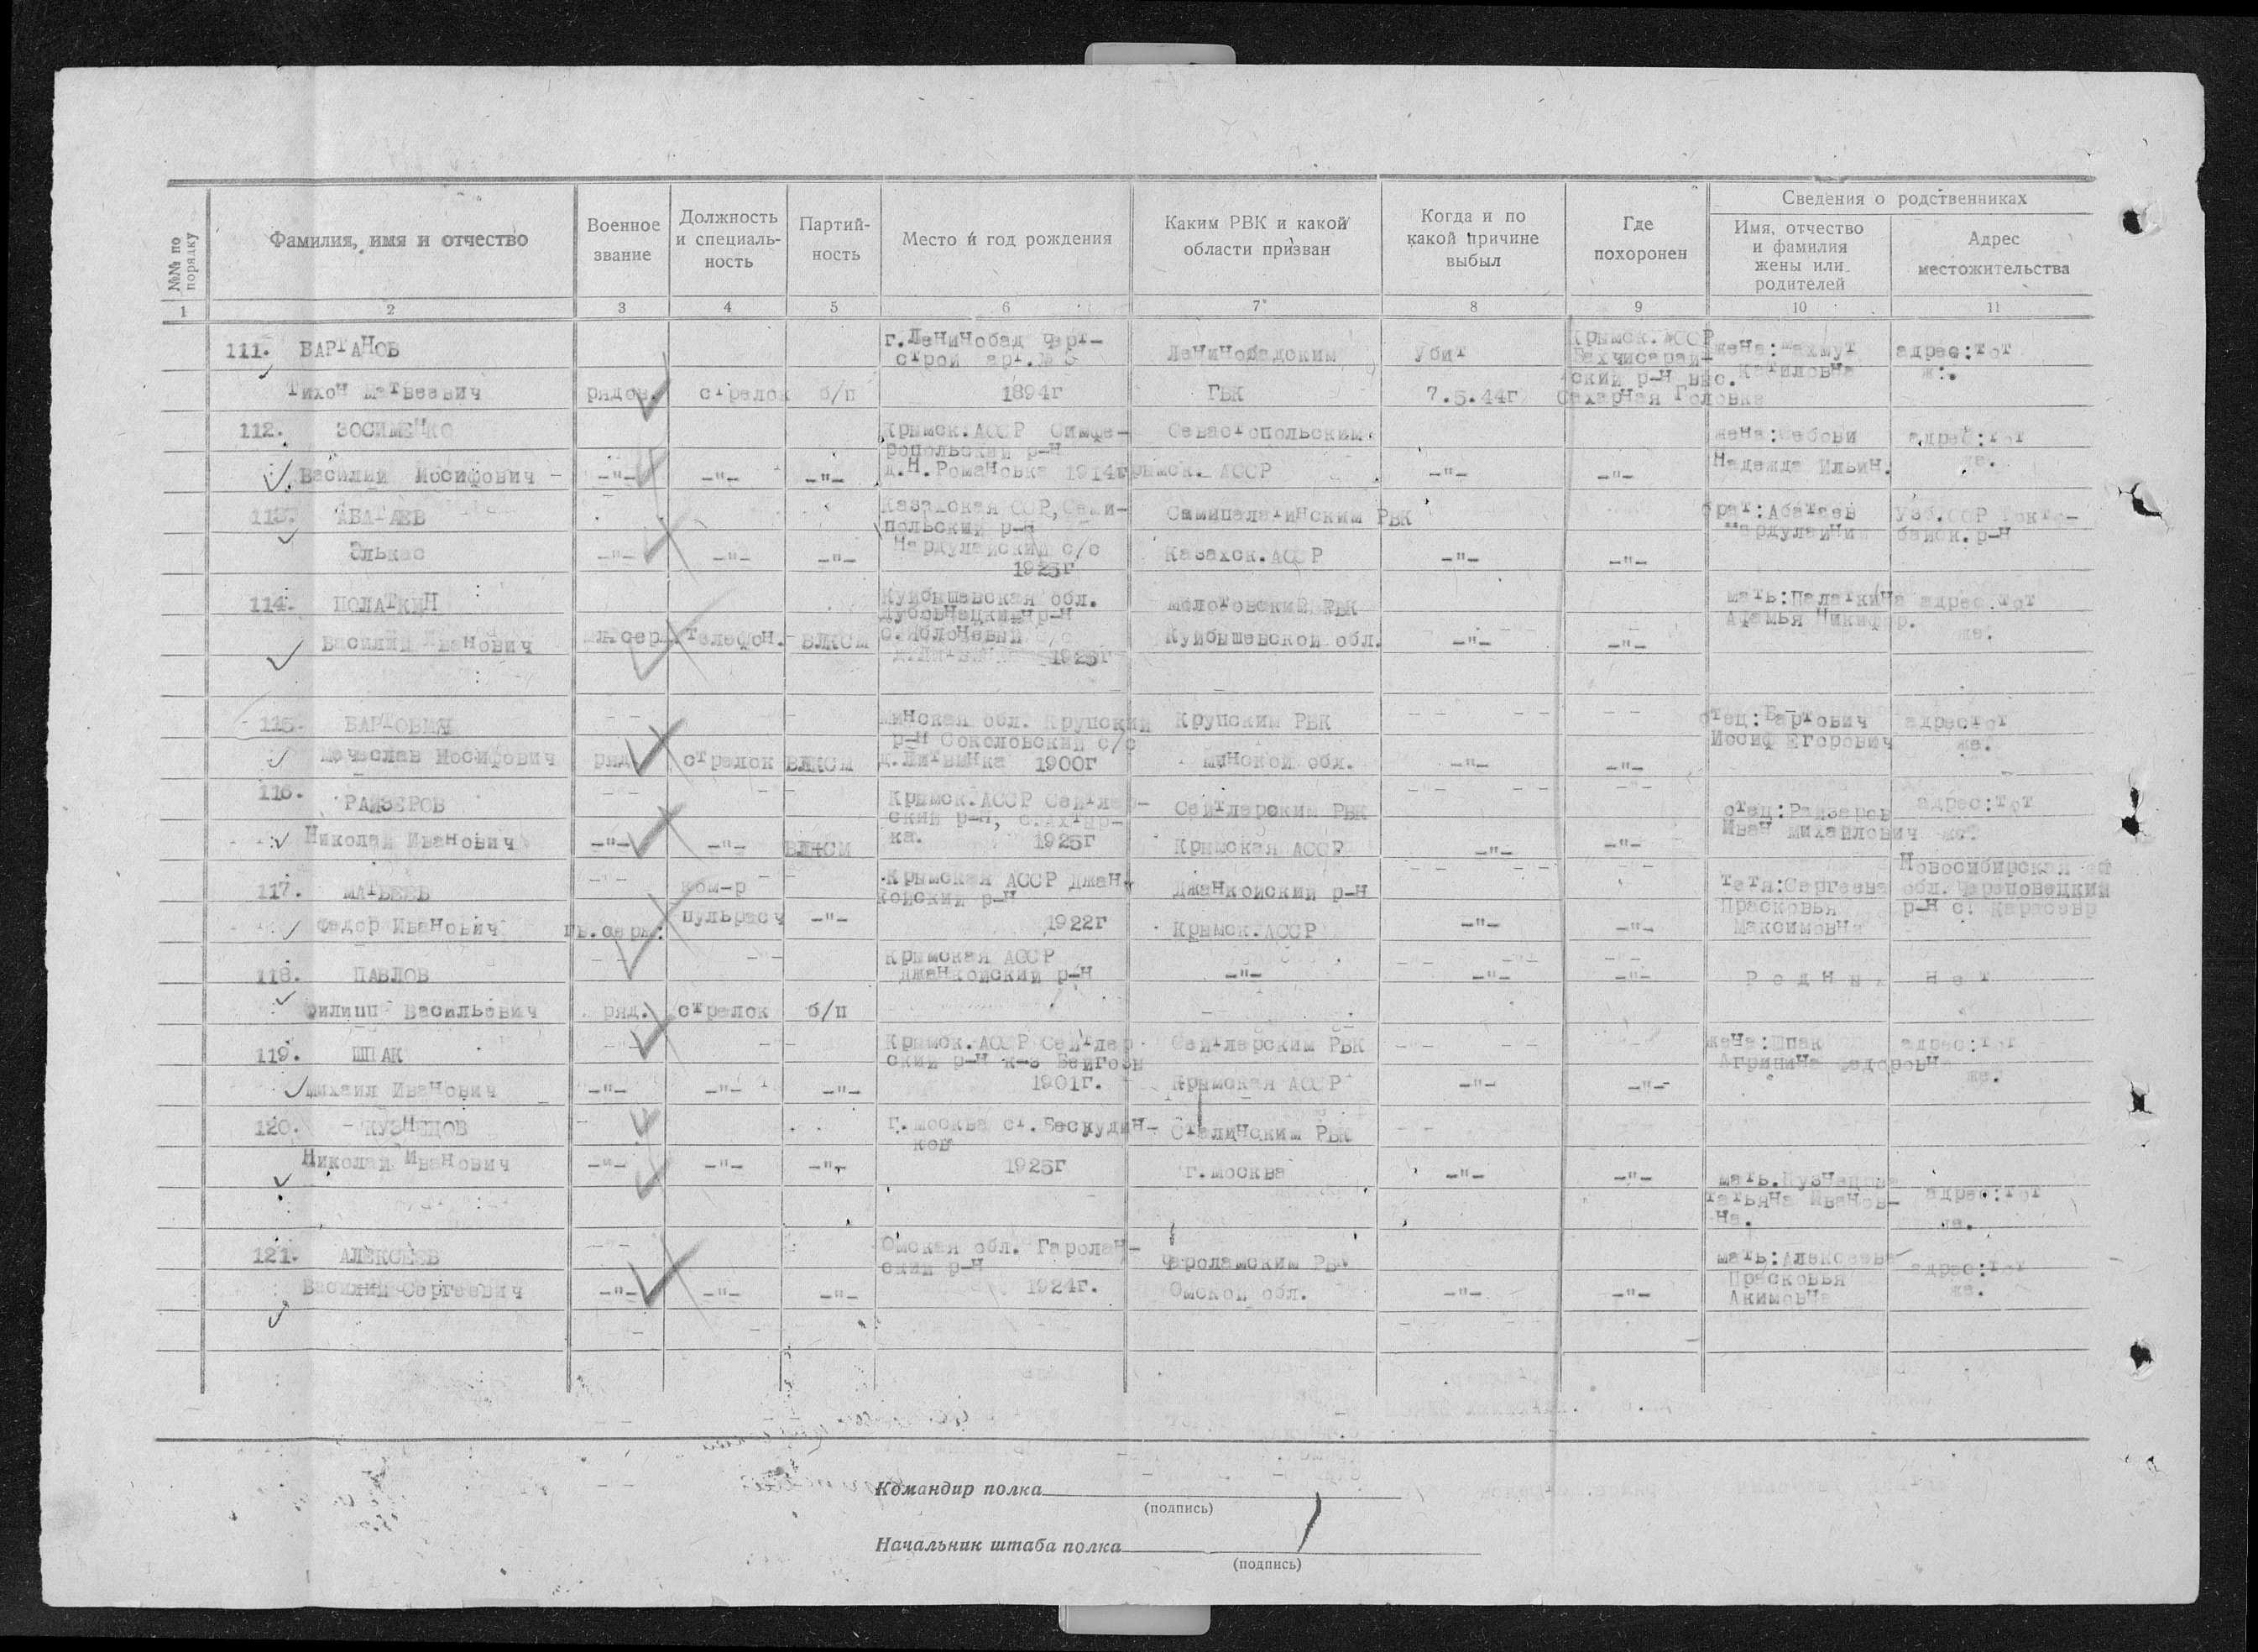 №№ по порядку
Фамилия, имя и отчество
Военное звание
Должность и специаль-ность
Партий-ность
Место и год рождения
Каким РВК и какой области призван
Когда и по какой причине выбыл
Где похоронен
Сведения о родственниках
Имя, отчество и фамилия жены или родителей
Адрес местожительства
1 2 3 4 5 6 7 8 9 10 11
111. ВАРТАНОВ г.Ленинобад Черт- Ленинобадским Убит Крымск.АССР жена: адрес:тот
строй арт.№ Бахчисарай- ж.
Тихон Матвеевич рядов. стрелок б/п 1894г ГВК 7.5.44г ский р-н выс.
Сахарная Головка
112. ЗОСИМЕНКО Крымск.АССР Симфе- Севастопольским жена: адрес:тот
ропольский р-н
Василий Иосифович -"- -"- -"- д.Н.Романовка 1914г Крымск. АССР -"- -"- Надежда Ильин. же.
113. АБАТАЕВ Казахская ССР, Семи- Семипалатинским РВК брат:Абатаев Узб.ССР
польский р-н
Элькас -"- -"- -"- Мардулайский с/с Казахск.АССР -"- -"- р-н
1925г
114. ПОЛАТКИН Куйбышевская обл. Молотовский РВК мать:Палаткина адрес.тот
р-н
Василий Иванович мл.сер. телефон. ВЛКСМ с.Яблоневый Куйбышевской обл. -"- -"- же.
1925г
115. БАРТОВИЧ Минская обл. Крупский Крупским РВК отец:Бартович адрес тот
р-н Соколовский с/с Иосиф Егорович же.
Мечеслав Иосифович ряд. стрелок ВЛКСМ д.Литвинка 1900г Минской обл. -"- -"-
116. РАЙЗЕРОВ Крымск.АССР Сейтлер- Сейтлерским РВК отец:Райзеров адрес:тот
ский р-н, с.Ахтыр- Иван Михайлович же.
Николай Иванович -"- -"- ВЛКСМ ка. 1925г Крымская АССР -"- -"-
117. МАТВЕЕВ ком-р Крымская АССР Джан- Джанкойский р-н тетя:Сергеева Новосибирская
койский р-н обл. Череповецкий
Федор Иванович гв.серж. пульрасч -"- 1922г Крымск.АССР -"- -"- Прасковья р-н с.
Максимовна
118. ПАВЛОВ Крымская АССР
Джанкойский р-н -"- -"- -"- Родных нет
Филипп Васильевич ряд. стрелок б/п
119. ШПАК Крымск.АССР Сейтлер- Сейтлерским РВК жена:Шпак адрес:тот
ский р-н к-з Бейгозы Агринина Федоровна
Михаил Иванович -"- -"- -"- 1901г. Крымская АССР -"- -"- же.
120. КУЗНЕЦОВ г.Москва ст.Бескудин- Сталинским РВК
ков
Николай Иванович -"- -"- -"- 1925г г.Москва -"- -"- мать.Кузнецова
Татьяна Иванов- адрес:тот
на. же.
121. АЛЕКСЕЕВ Омская обл. РВК мать:Алексеева
ский р-н Прасковья адрес:тот
Василий Сергеевич -"- -"- -"- 1924г. Омской обл. -"- -"- Акимовна же.
Командир полка
(подпись)
Начальник штаба полка
(подпись)